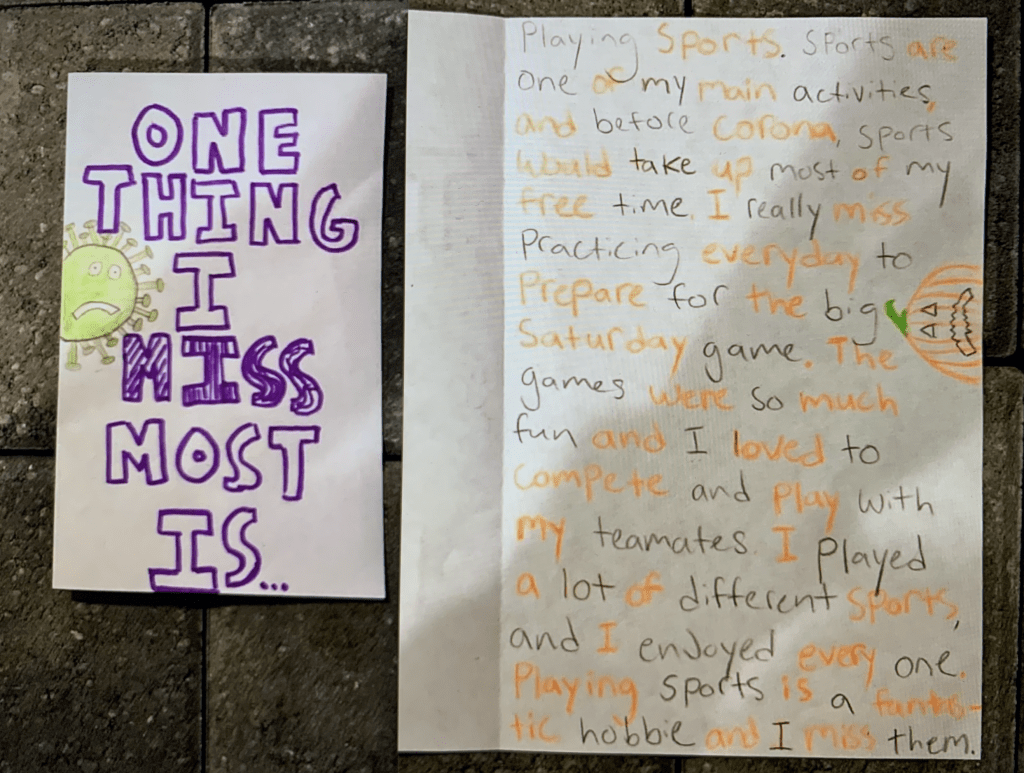 ONE
THING
I
MISS
MOST
IS...
Playing Sports. Sports are
one of my main activities,
and before Corona, sports
would take up most of my
free time. I really miss
Practicing everyday to
Prepare for the big
Saturday game. The
games were so much
fun and I loved to
Compete and Play with
my teamates. I Played
a lot of different Sports,
and I enjoyed every one.
Playing sports is a fantas-
tic hobbie and I miss them.